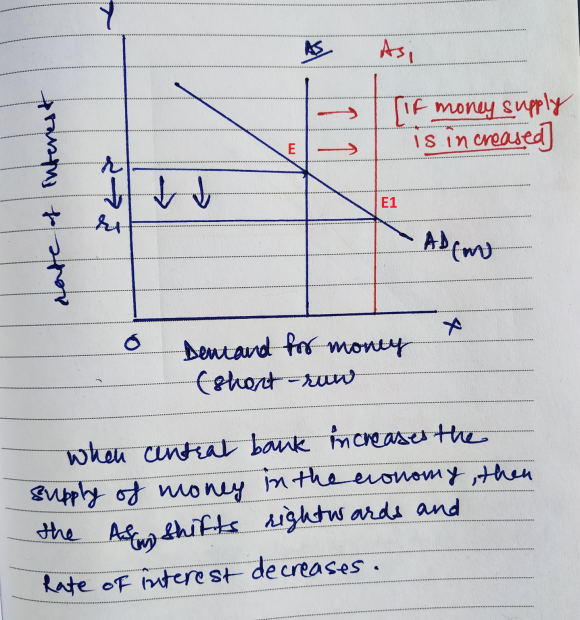 Y
AS
AS1
[if money supply
is increased]
Rate of interest
E
r
E1
r1
AD(m)
O
X
Demand for money
(short-run
When central bank increases the
supply of money in the economy, then
the AS(m) shifts rightwards and
Rate of interest decreases.